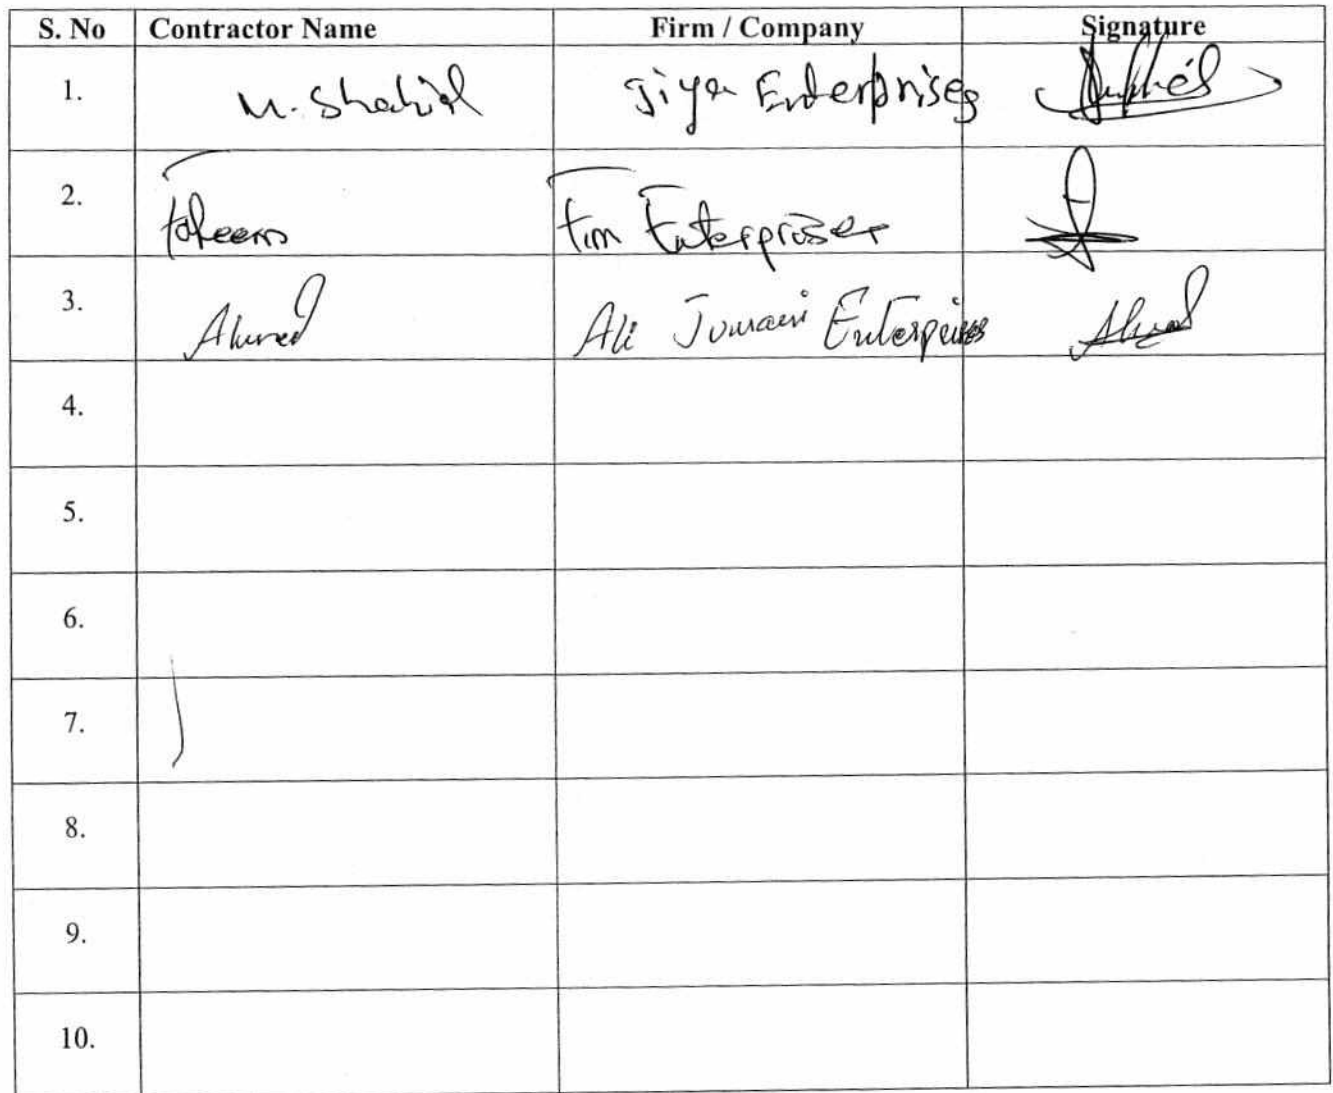 S. No Contractor Name Firm / Company Signature
1. M. Shakil Jiya Enterprises
2. Faheem Fim Enterprises
3. Ahmed Ali Enterprises Ahmed
4.
5.
6.
7.
8.
9.
10.